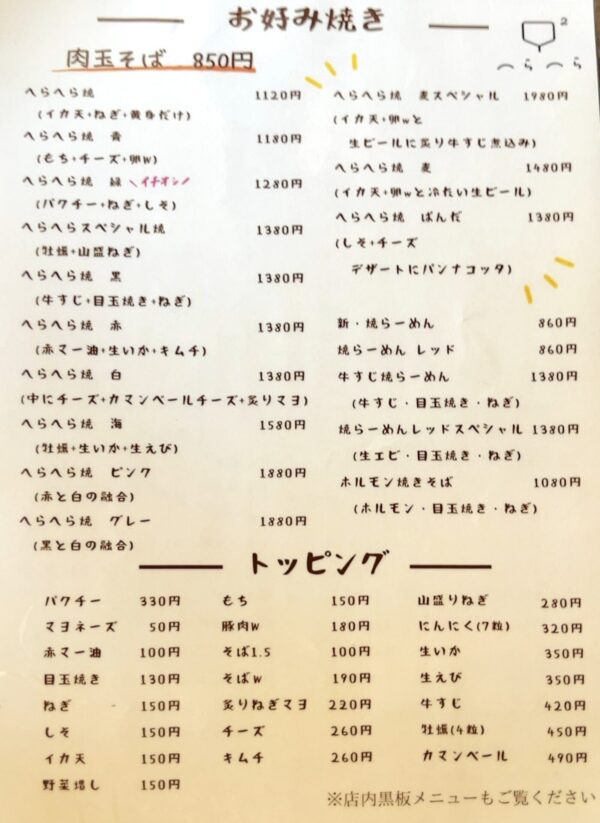 お好み焼き
2
へらへら
肉玉そば 850円
へらへら焼 1120円
(イカ天+ねぎ+黄身だけ)
へらへら焼 青 1180円
(もち+チーズ+卵W)
へらへら焼 緑 \イチオシ/ 1280円
(パクチー+ねぎ+しそ)
へらへらスペシャル焼 1380円
(牡蠣+山盛ねぎ)
へらへら焼 黒 1380円
(牛すじ+目玉焼き+ねぎ)
へらへら焼 赤 1380円
(赤マー油+生いか+キムチ)
へらへら焼 白 1380円
(中にチーズ+カマンベールチーズ+炙りマヨ)
へらへら焼 海 1580円
(牡蠣+生いか+生えび)
へらへら焼 ピンク 1880円
(赤と白の融合)
へらへら焼 グレー 1880円
(黒と白の融合)
へらへら焼 麦スペシャル 1980円
(イカ天+卵wと
生ビールに炙り牛すじ煮込み)
へらへら焼 麦 1480円
(イカ天+卵wと冷たい生ビール)
へらへら焼 ぱんだ 1380円
(しそ+チーズ
デザートにパンナコッタ)
新・焼らーめん 860円
焼らーめん レッド 860円
牛すじ焼らーめん 1380円
(牛すじ・目玉焼き・ねぎ)
焼らーめんレッドスペシャル 1380円
(生エビ・目玉焼き・ねぎ)
ホルモン焼きそば 1080円
(ホルモン・目玉焼き・ねぎ)
トッピング
パクチー 330円
マヨネーズ 50円
赤マー油 100円
目玉焼き 130円
ねぎ 150円
しそ 150円
イカ天 150円
野菜増し 150円
もち 150円
豚肉W 180円
そば1.5 100円
そばw 190円
炙りねぎマヨ 220円
チーズ 260円
キムチ 260円
山盛りねぎ 280円
にんにく(7粒) 320円
生いか 350円
生えび 350円
牛すじ 420円
牡蠣(4粒) 450円
カマンベール 490円
※店内黒板メニューもご覧ください